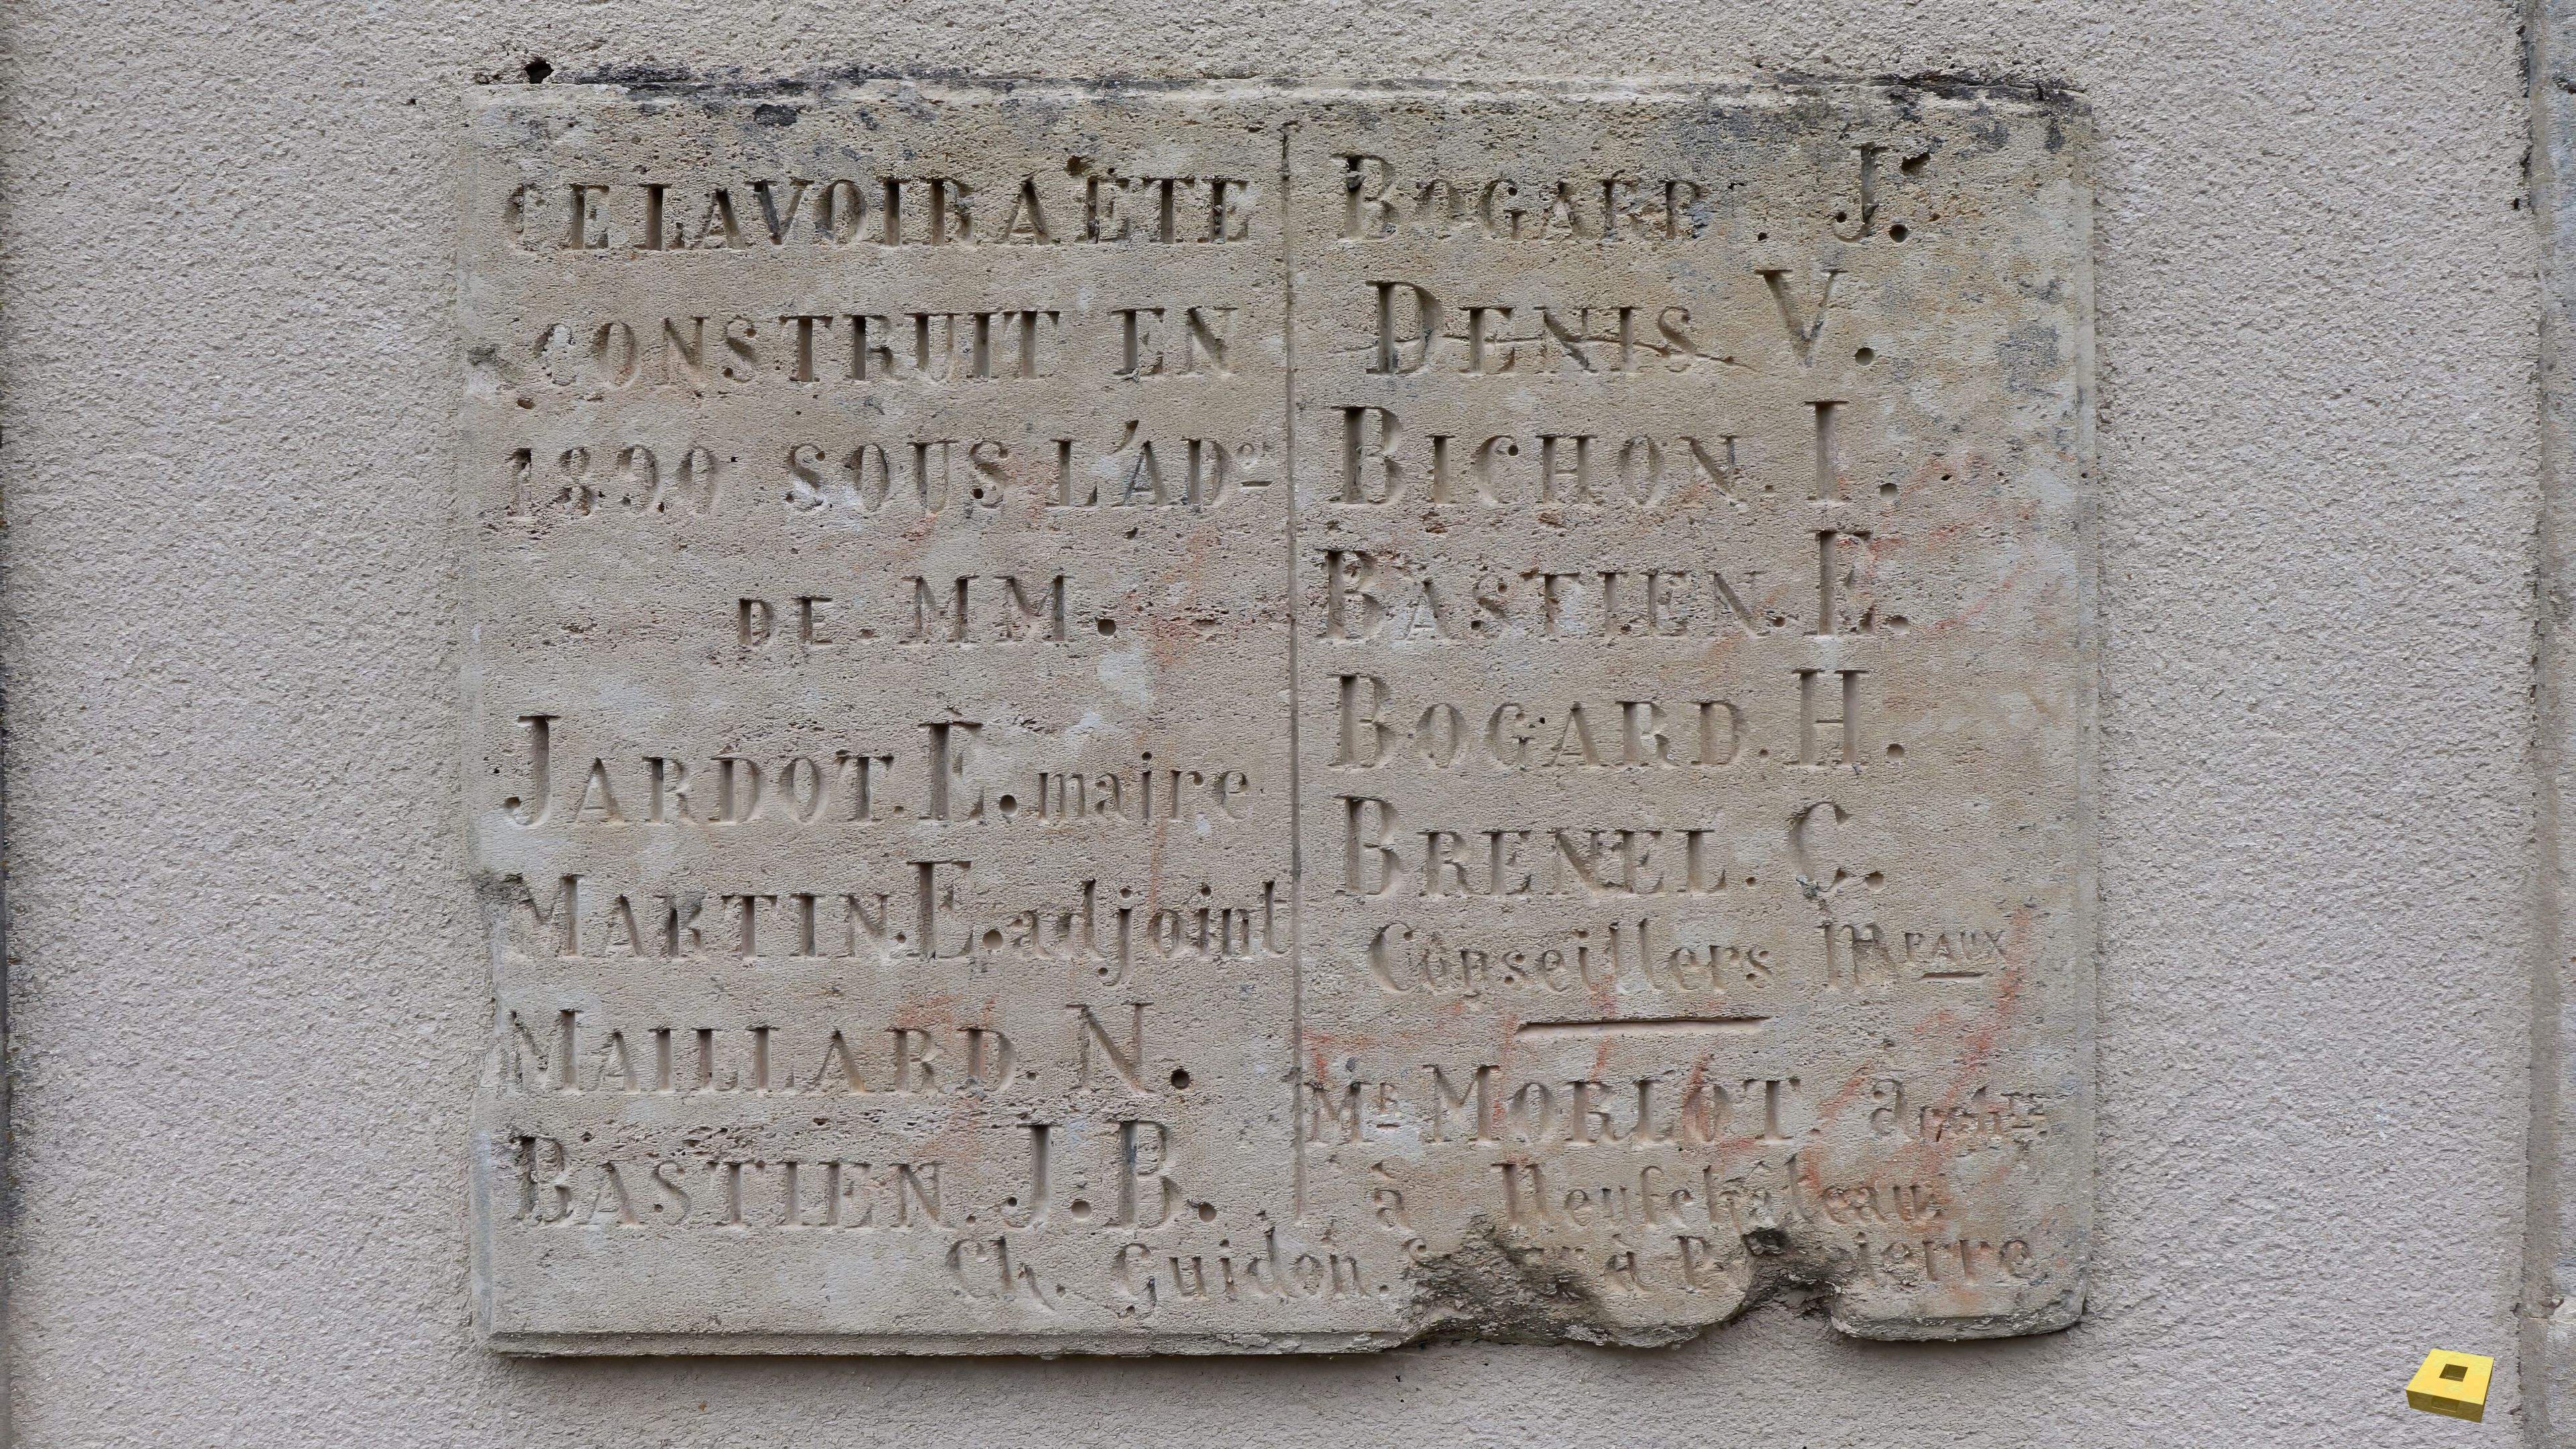 CE LAVOIR A ÉTÉ
CONSTRUIT EN
1890 SOUS L'AD^on
DE. MM.
JARDOT. E. maire
MARTIN. E. adjoint
MAILLARD. N.
BASTIEN. J. B.
BOGARD. J.
DENIS V.
BICHON. I.
BASTIEN. E.
BOGARD. H.
BRENEL. C.
Conseillers M^PAUX
M^R MORLOT. a
à Neufchâteau
Ch. Guidon. à